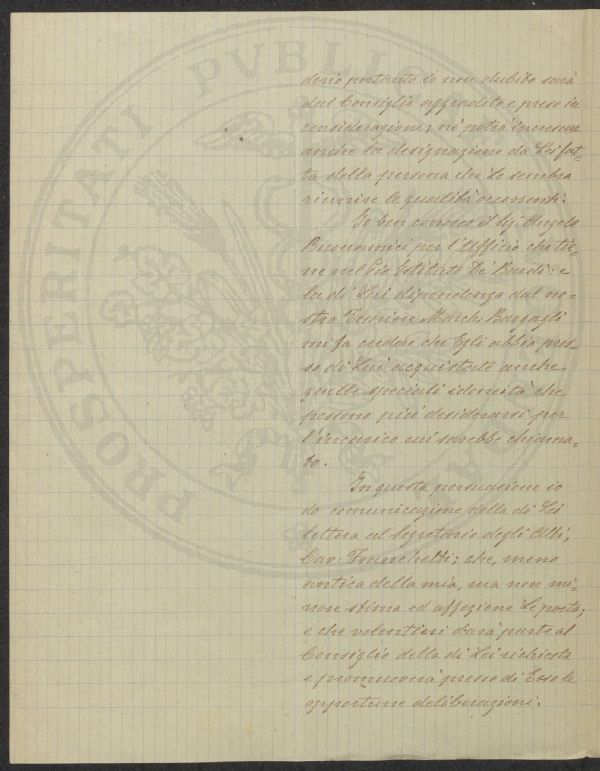 PROSPERITATI PVBLICAE
derio pertanto io non dubito sarà
dal Consiglio aggradito e preso in
considerazione; nè potrà increscere
anche la designazione da Lei fat=
ta della persona che Le sembra
riunire le qualità occorrenti.
Io ben conosco il Sig. Angelo
Buonamici per l'Ufficio che tie=
ne nel Pio Istituto De' Bardi: e
la di Lui dipendenza dal no=
stro March. Bargagli
mi fa credere che Egli abbia pres=
so di Lui acquistato anche
quelle speciali idoneità che
possono più desiderarsi per
l'incarico cui sarebbe chiama=
to.
In questa persuasione io
do comunicazione della di Lei
lettera al Segretario degli Atti,
Cav. Franchetti; che, meno
antica della mia, ma non mi=
nore stima ed affezione Le porta;
e che volentieri darà parte al
Consiglio della di Lei richiesta
e promuoverà presso di Esso le
opportune deliberazioni.